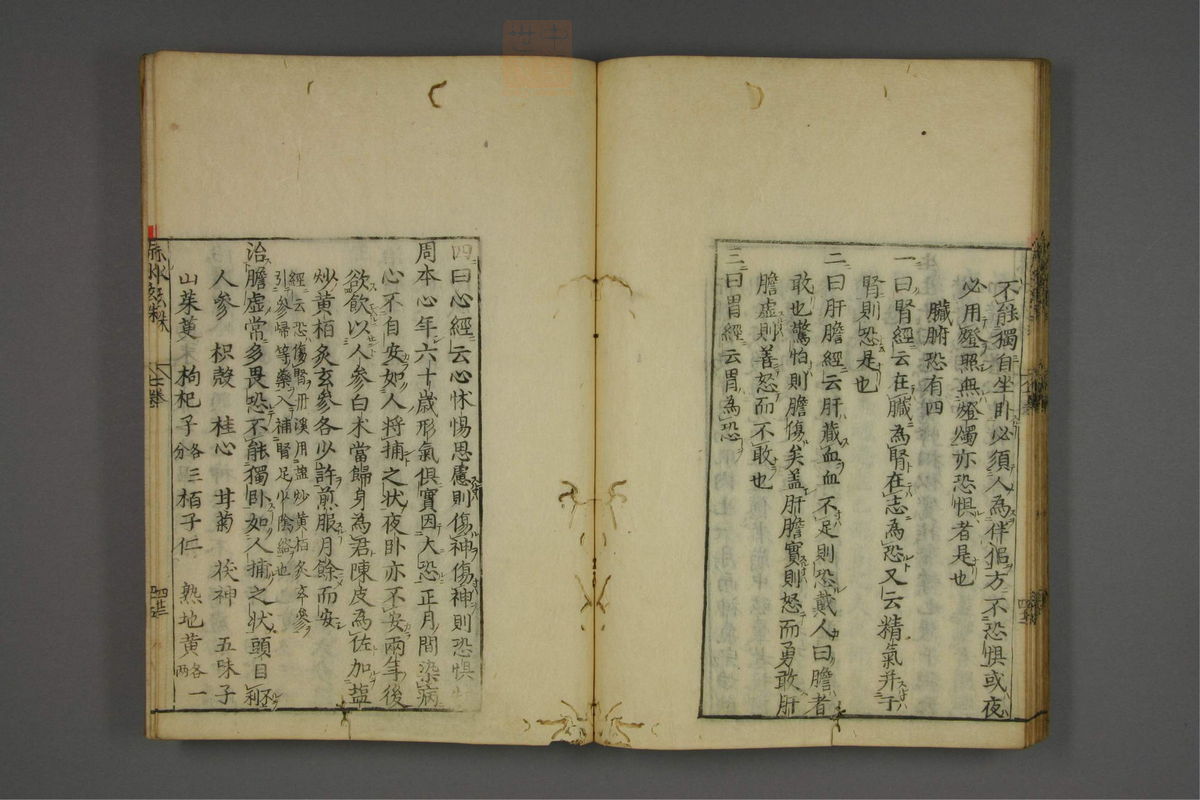 不能獨自坐臥必須人為伴侶方不恐惧或夜
必用燈照無燈燭亦恐惧者是也
臓腑恐有四
一曰腎經云在臓為腎在志為恐又云精氣并于
腎則恐是也
二曰肝膽經云肝藏血血不足則恐戴人曰膽者
敢也驚怕則膽傷矣蓋肝膽實則怒而勇敢肝
膽虛則善恐而不敢也
三曰胃經云胃為恐
四曰心經云心怵惕思慮則傷神傷神則恐惧
周本心年六十歲形氣俱實因大恐正月間染病
心不自安如人將捕之状夜卧亦不安兩年後
欲飲以人參白朮當歸身為君陳皮為佐加塩
炒黃栢炙玄參各少許煎服月餘而安
經云恐傷腎丹溪用塩炒黃栢炙玄參
引參歸等藥入補腎足少陰絡也
治膽虛常多畏恐不能獨卧如人捕之状頭目不利
人參 枳殼 桂心 甘菊 茯神 五味子
山茱萸 枸杞子各三分 栢子仁 熟地黃各一兩